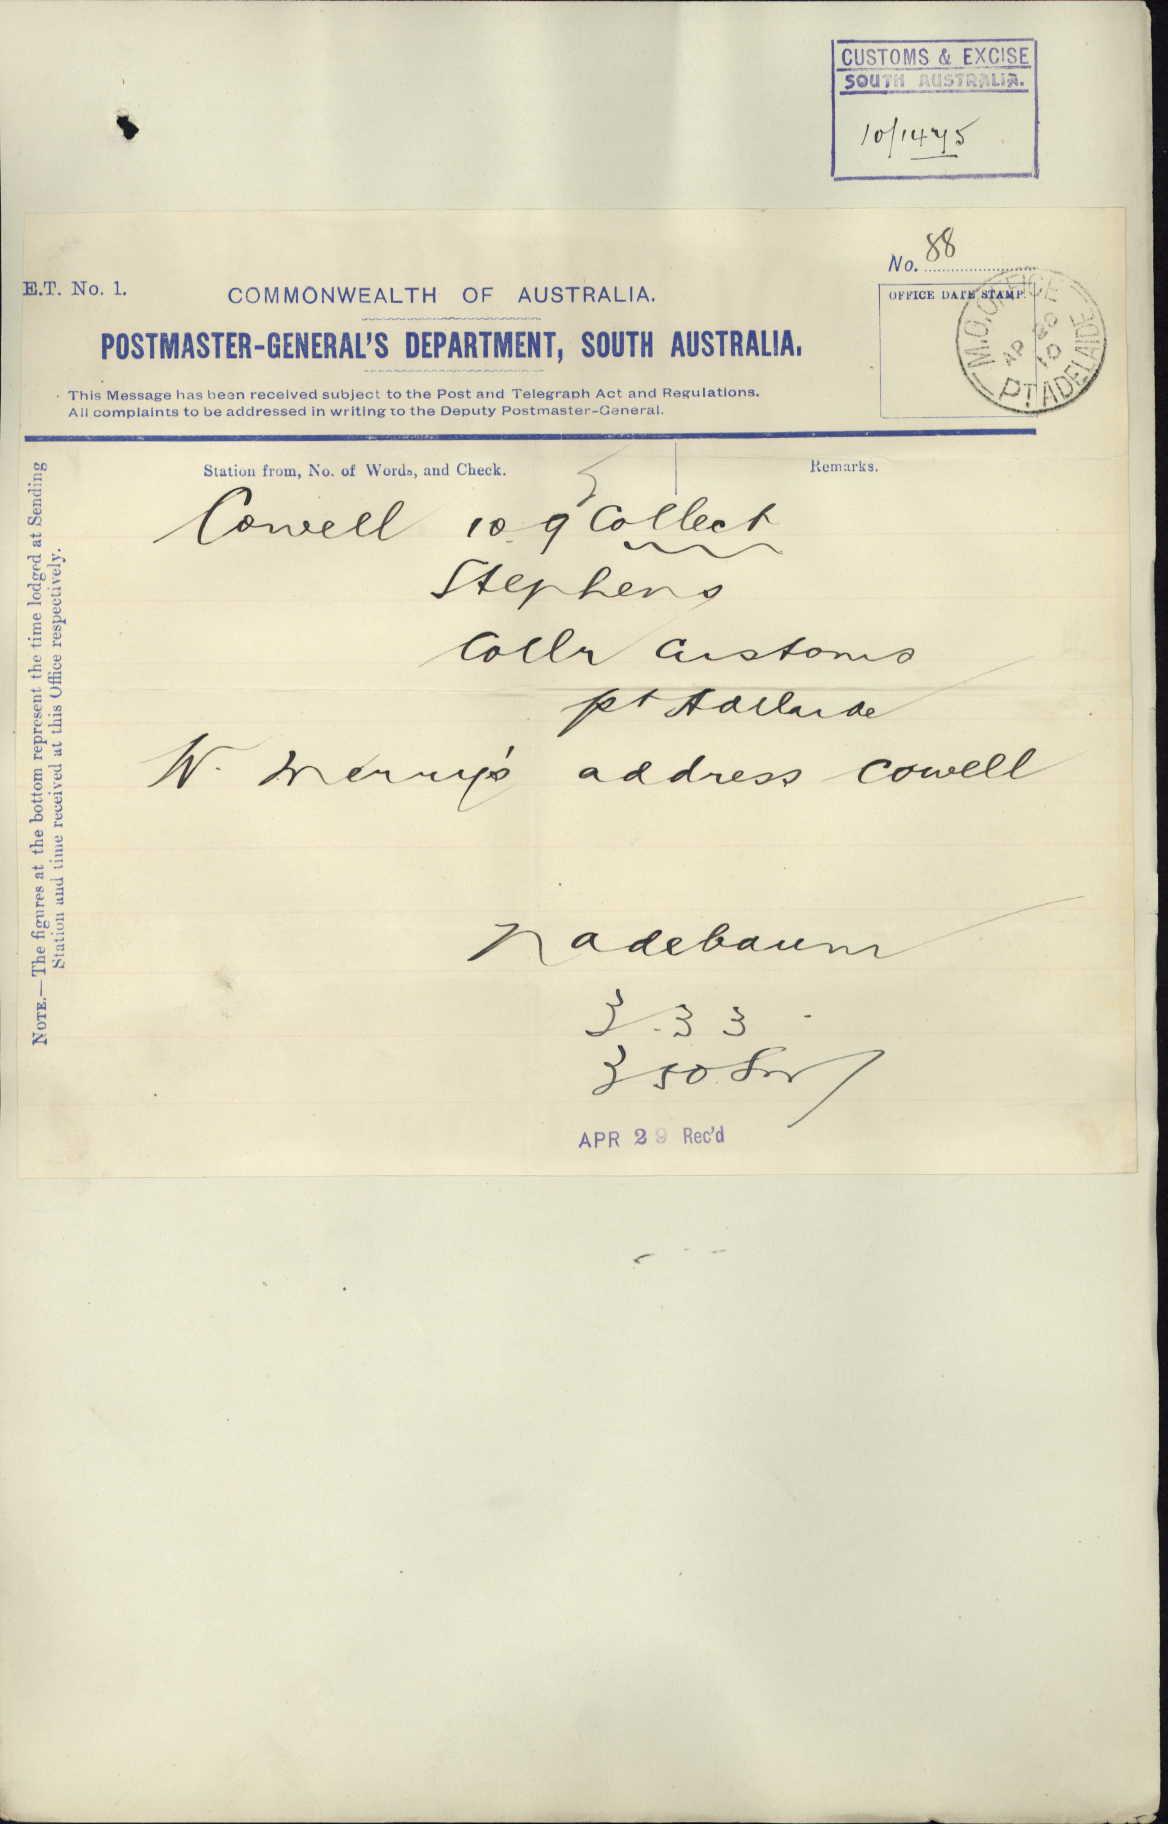 CUSTOMS & EXCISE
SOUTH AUSTRALIA.
10/1475
No. 88
E.T. No. 1.
COMMONWEALTH OF AUSTRALIA.
POSTMASTER-GENERAL'S DEPARTMENT, SOUTH AUSTRALIA.
OFFICE DATE STAMP.
M.O. OFFICE
AP
10
PT ADELAIDE
This Message has been received subject to the Post and Telegraph Act and Regulations.
All complaints to be addressed in writing to the Deputy Postmaster-General.
Station from, No. of Words, and Check.
Remarks.
Cowell 10 9 Collect
Stephens
Collr Customs
pt Adelaide
W. Merry's address Cowell
Nadebaum
3.33
3 50
APR 29 Rec'd
NOTE.—The figures at the bottom represent the time lodged at Sending
Station and time received at this Office respectively.